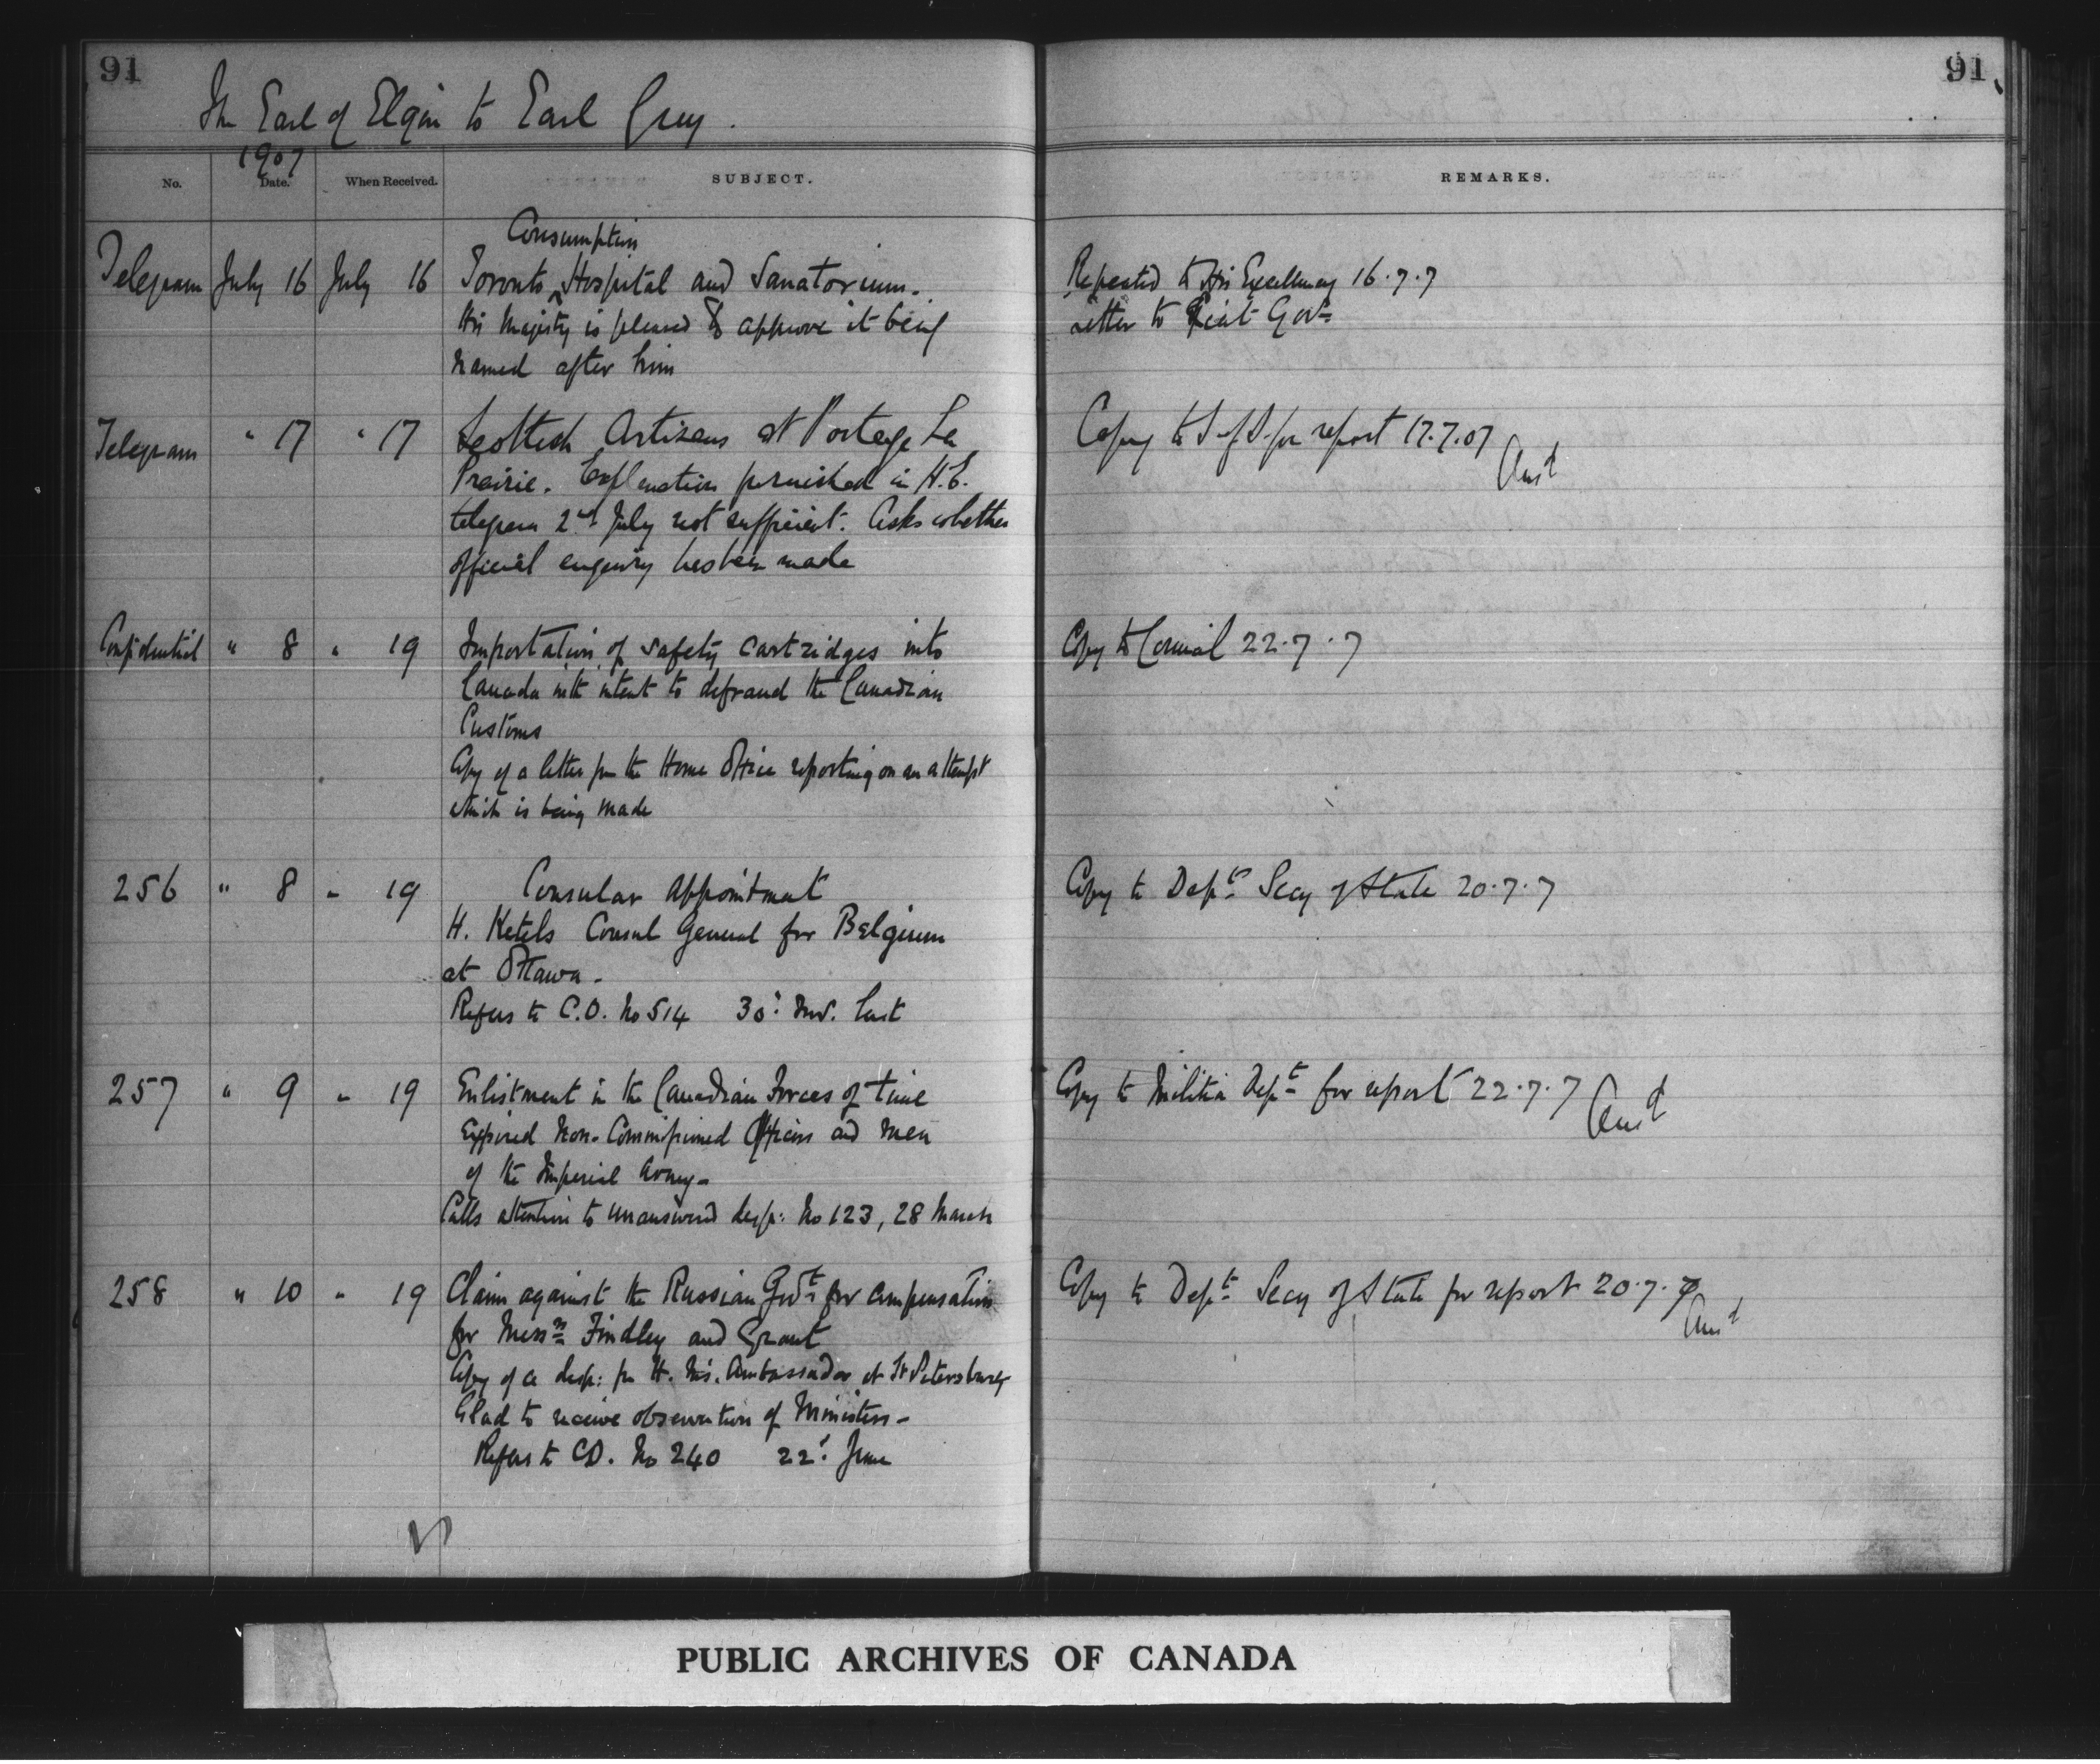 91
91
The Earl of Elgin to Earl Grey.
1907
No. Date. When Received. SUBJECT. REMARKS.
Consumption
Telegram July 16 July 16 Toronto ^ Hospital and Sanatorium. Repeated to His Excellency 16.7.7
His Majesty is pleased to approve it being Letter to Lieut Govr
named after him
Telegram " 17 " 17 Scottish Artizans at Portage La Copy to S of S. for report 17.7.07
Prairie. Explanation furnished in H.E. Ansd
telegram 2nd July not sufficient. Asks whether
official enquiry has been made
Confidential " 8 " 19 Importation of safety cartridges into Copy to Council 22.7.7
Canada with intent to defraud the Canadian
Customs
Copy of a letter fm the Home Office reporting on an attempt
which is being made
256 " 8 " 19 Consular appointment Copy to Dept Secy of State 20.7.7
H. Ketels Consul General for Belgium
at Ottawa.
Refers to C.O. No 514 30: Nov. last
257 " 9 " 19 Enlistment in the Canadian Forces of time Copy to Militia Dept for report 22.7.7 Ansd
Expired Non-Commissioned Officers and men
of the Imperial Army-
Calls attention to unanswered desp: No 123, 28 March
258 " 10 " 19 Claim against the Russian Govt for compensation Copy to Dept Secy of State for report 20.7.7
for Messrs Findley and Grant Ansd
Copy of a desp: fm H. M's. Ambassador at St Petersburg
Glad to receive observation of Ministers-
Refers to C.O. No 240 22: June
PUBLIC ARCHIVES OF CANADA